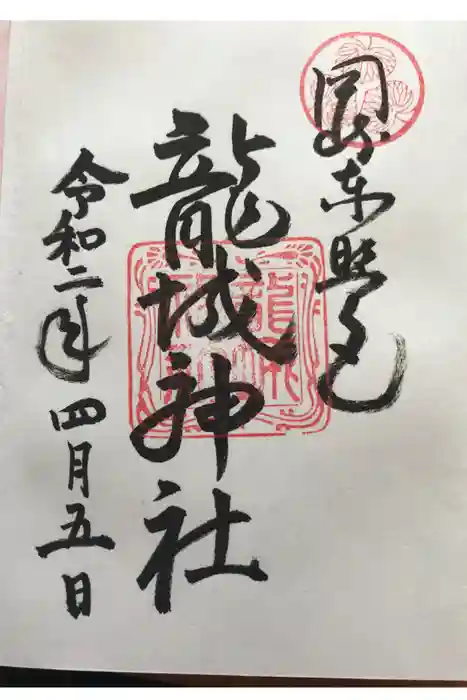 岡崎東照宮
龍城神社
令和二年四月五日